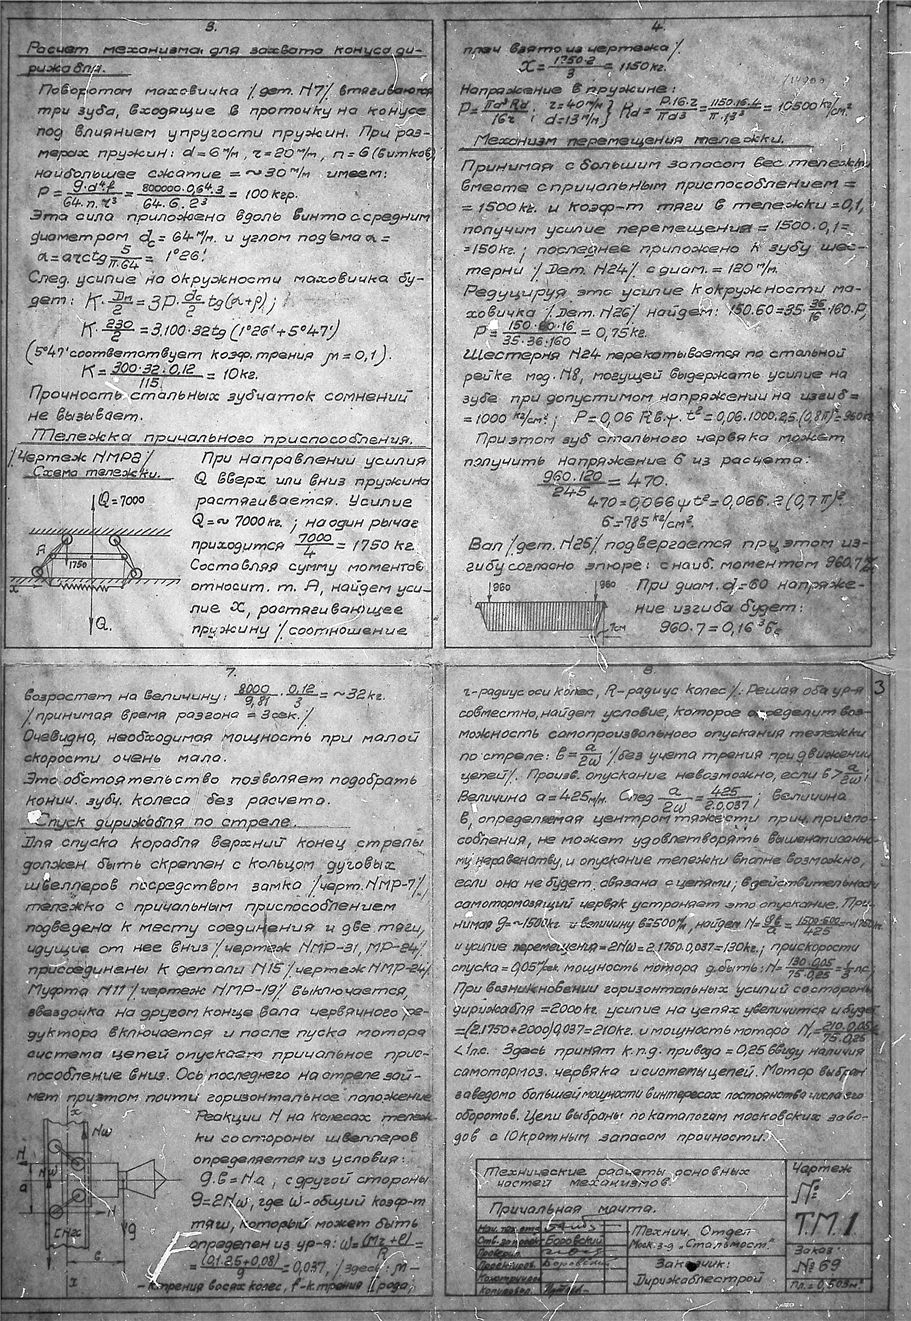 3.
Расчет механизма для захвата конуса ди-
рижабля.
Поворотом маховичка /дет. N7/ втягиваются
три зуба, входящие в проточку на конусе
под влиянием упругости пружин. При раз-
мерах пружин: d=6 м/м, r=20 м/м, n=6 (витков)
наибольшее сжатие = ~30 м/м имеем:
P = g·d⁴f / 64.n.r³ = 800000·0,6⁴·3 / 64·6·2³ = 100 кгр.
Эта сила приложена вдоль винта с средним
диаметром dc = 64 м/м. и углом подъема α=
α = arctg 5/π·64 = 1°26'.
След. усилие на окружности маховичка бу-
дет: K · Dм/2 = 3P · dc/2 tg(α+ρ);
K · 230/2 = 3.100·32tg (1°26'+5°47')
(5°47' соответствует коэф. трения μ=0,1).
K = 300·32·0,12 / 115 = 10 кг.
Прочность стальных зубчаток сомнений
не вызывает.
Тележка причального приспособления.
/Чертеж NМР8/
Схема тележки.
Q=7000
A
1750
x
Q.
При направлении усилия
Q вверх или вниз пружина
растягивается. Усилие
Q=~7000 кг.; на один рычаг
приходится 7000/4 = 1750 кг.
Составляя сумму моментов
относит. т. А, найдем уси-
лие X, растягивающее
пружину /соотношение
4.
плеч взято из чертежа/.
X = 1750·2 / 3 = 1150 кг.
Напряжение в пружине:
P = πd³Rd / 16r ; r=40 м/м d=13 м/м } Rd = P·16·r / πd³ = 1150·16·4 / π·1,3³ = 10500 кг/см²
Механизм перемещения тележки.
Принимая с большим запасом вес тележки
вместе с причальным приспособлением =
= 1500 кг. и коэф-т тяги в тележки = 0,1,
получим усилие перемещения = 1500·0,1=
=150 кг.; последнее приложено к зубу шес-
терни /Дет. N24/ с диам. = 120 м/м.
Редуцируя это усилие к окружности ма-
ховичка /Дет. N26/ найдем: 150.60=35· 36/16 ·160.P,
P = 150·60·16 / 35·36·160 = 0,75 кг.
Шестерня N24 перекатывается по стальной
рейке мод. N8, могущей выдержать усилие на
зубе при допустимом напряжении на изгиб =
= 1000 кг/см²; P=0,06 Rв.ψ. t² = 0,06.1000.2,5(0,8π)²=960 кг
При этом зуб стального червяка может
получить напряжение б из расчета:
960·120 / 245 = 470.
470=0,066 ψ t² = 0,066.2 (0,7π)²
б=785 кг/см².
Вал /дет. N25/ подвергается при этом из-
гибу согласно эпюре: с наиб. моментом 960.7
960
960
7см
При диам. d=60 напряже-
ние изгиба будет:
960·7 = 0,1 6³ б
7.
возрастет на величину: 8000/9,81 · 0,12/3 = ~32 кг.
/принимая время разгона = 3 сек./
Очевидно, необходимая мощность при малой
скорости очень мала.
Это обстоятельство позволяет подобрать
конич. зубч. колеса без расчета.
Спуск дирижабля по стреле.
Для спуска корабля верхний конец стрелы
должен быть скреплен с кольцом дуговых
швеллеров посредством замка /черт. NМР-7/,
тележка с причальным приспособлением
подведена к месту соединения и две тяги,
идущие от нее вниз /чертеж NМР-31, МР-24/
присоединены к детали N15 /чертеж NМР-24/.
Муфта N11 /чертеж NМР-19/ выключается,
звездочка на другом конце вала червячного ре-
дуктора включается и после пуска мотора
система цепей опускает причальное прис-
пособление вниз. Ось последнего на стреле зай-
мет при этом почти горизонтальное положение
x
Nω
N
Nω
a
N
g
в
x
Реакции N на колесах тележ-
ки со стороны швеллеров
определяется из условия:
g.в = N.a, с другой стороны
g=2Nω, где ω-общий коэф-т
тяги, который может быть
определен из ур-я: ω = (μr + f) / R =
= (0,1·2,5+0,08) / 9 = 0,037, /здесь μ-
-к.трения в осях колес, f-к.трения II рода,
8.
r-радиус оси колес, R-радиус колес/. Решая оба ур-я
совместно, найдем условие, которое определит воз-
можность самопроизвольного опускания тележки
по стреле: в = a/2ω /без учета трения при движении
цепей/. Произв. опускание невозможно, если в > a/2ω;
Величина a=425 м/м. След a/2ω = 425 / 2.0,037; величина
в, определяемая центром тяжести прич. приспо-
собления, не может удовлетворять вышенаписанно-
му неравенству, и опускание тележки вполне возможно,
если она не будет связана с цепями; в действительности
самотормозящий червяк устраняет это опускание. При-
нимая g=~1500 кг и величину в=500 м/м, найдем N= gв/a = 1500·500 / 425 =~1750 кг.
и усилие перемещения = 2Nω = 2.1750.0,037 = 130 кг.; при скорости
спуска = 0,05 м/сек. мощность мотора д. быть: N= 130·0,05 / 75·0,25 = 1/3 л.с.
При возникновении горизонтальных усилий со стороны
дирижабля = 2000 кг. усилие на цепях увеличится и будет
=(2.1750+2000)0,037=210 кг. и мощность мотора N= 210·0,05 / 75·0,25
<1 л.с. Здесь принят к.п.д. привода = 0,25 ввиду наличия
самотормоз. червяка и системы цепей. Мотор выбран
заведомо большей мощности в интересах постоянства числа его
оборотов. Цепи выбраны по каталогам московских заво-
дов с 10 кратным запасом прочности.
3
Технические расчеты основных
частей механизмов.
Причальная мачта.
Чертеж
№
Т.М.1
Заказ:
№ 69
Пл.=0,503 м²
Нач. тех. отд.
Отв. за проект Боровский
Проверил
Проектиров. Боровский
Копировал.
Технич. Отдел
Моск. з-д „Стальмост."
Заказчик:
Дирижаблестрой